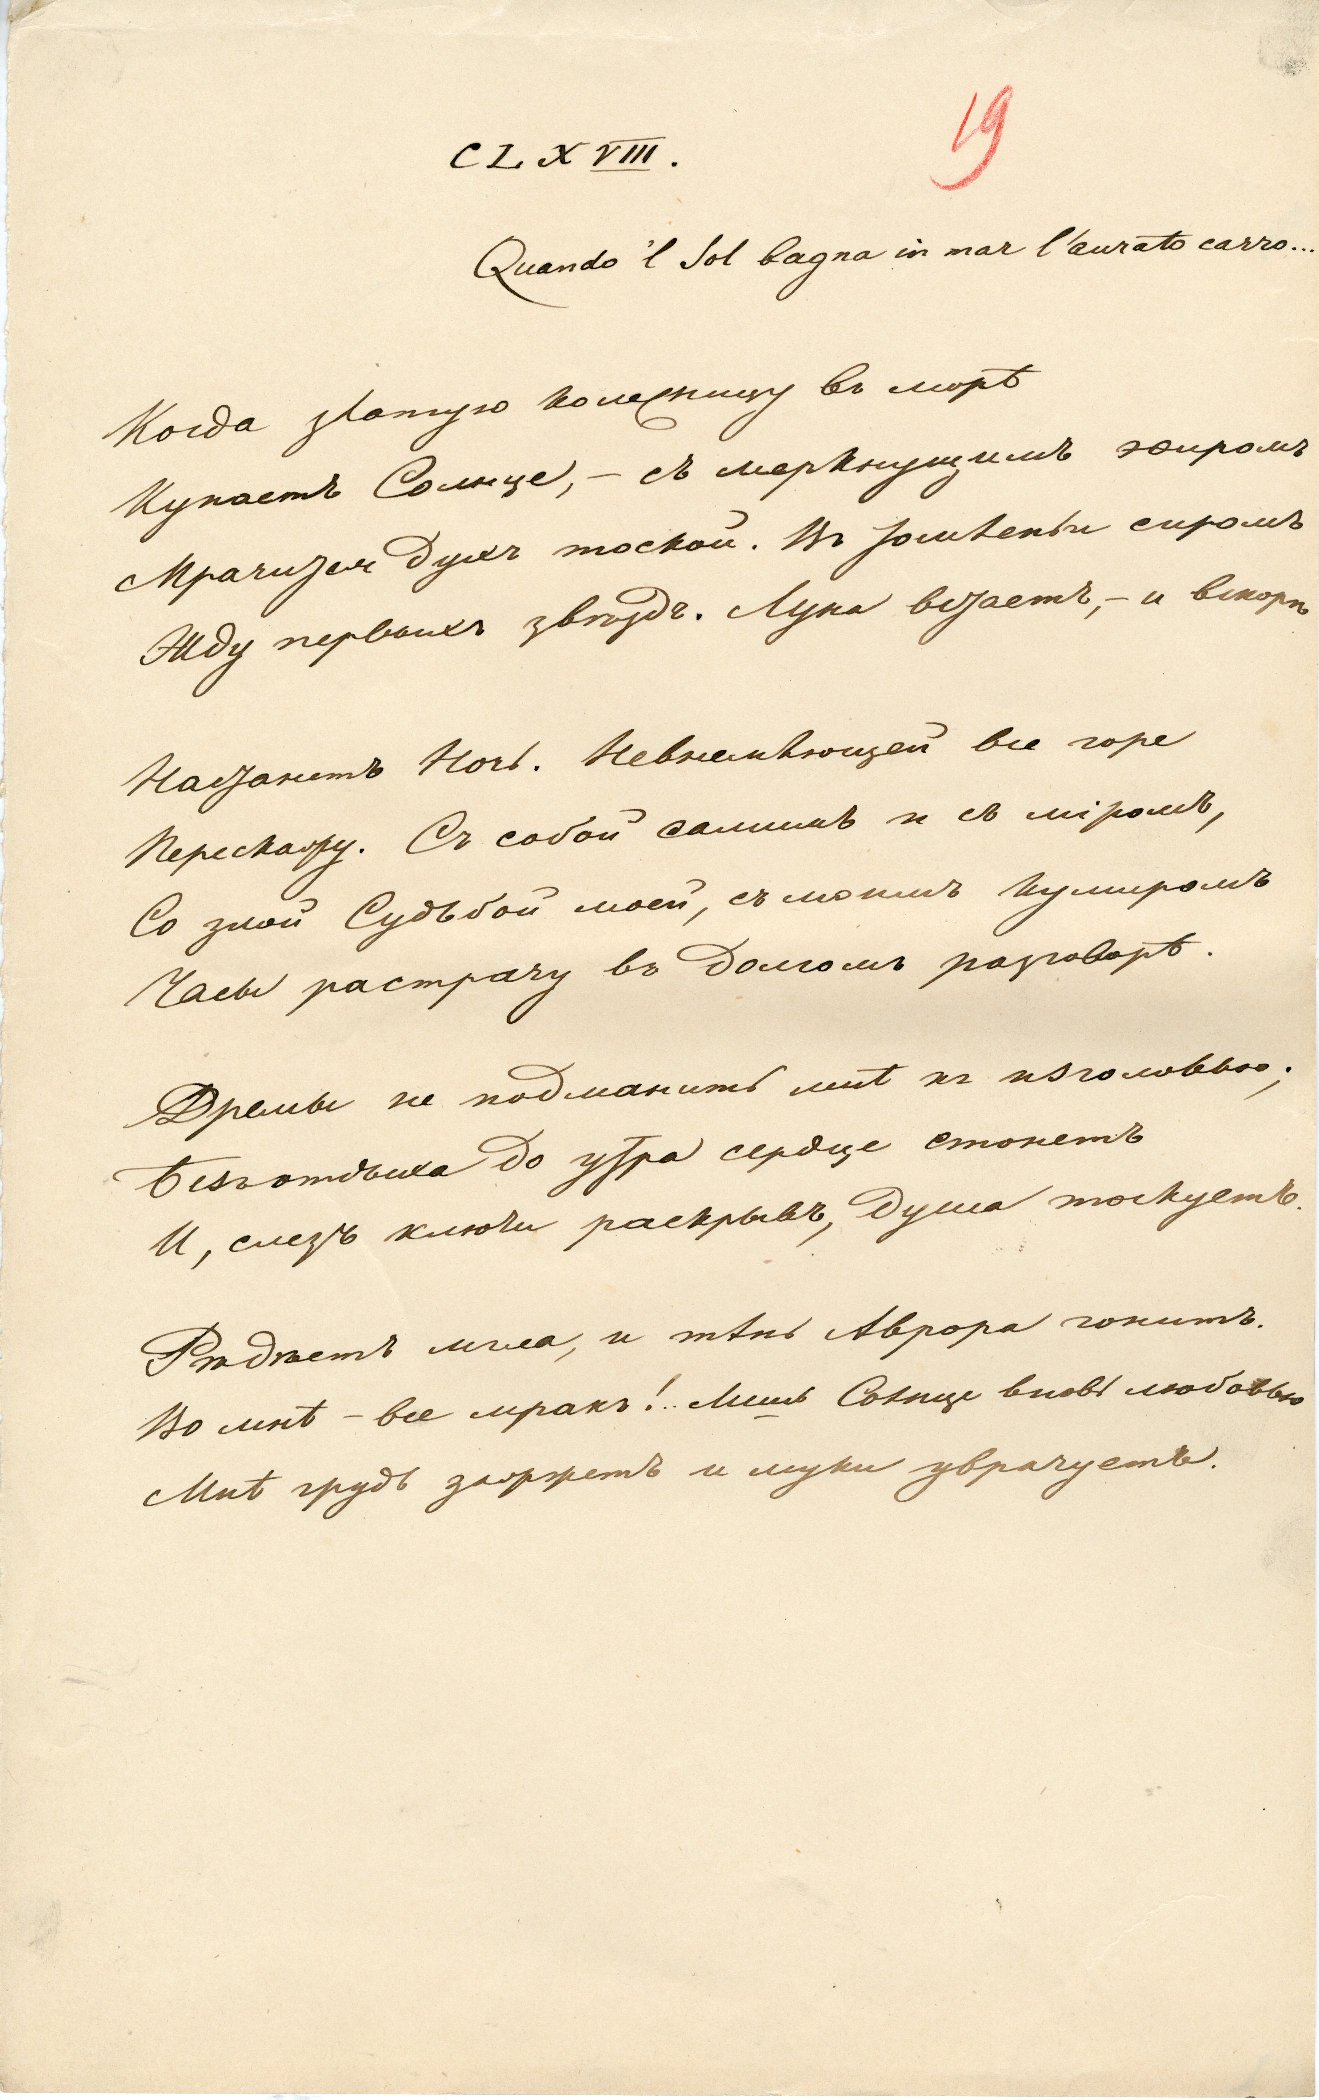 19
CLXVIII.
Quando 'l Sol bagna in mar l'aurato carro...
Когда златую колесницу въ морѣ
Купаетъ Солнце, – съ меркнущимъ эѳиромъ
Мрачится духъ тоской. Въ томленьи сиромъ
Жду первыхъ звѣздъ. Луна встаетъ, – и вскорѣ
Настанетъ Ночь. Невнемлющей все горе
Перескажу. Съ собой самимъ и съ міромъ,
Со злой Судьбой моей, съ моимъ Кумиромъ
Часы растрачу въ долгомъ разговорѣ.
Дремы не подманить мнѣ къ изголовью;
Безъ отдыха до утра сердце стонетъ
И, слезъ ключи раскрывъ, душа тоскуетъ.
Рѣдѣетъ мгла, и тѣнь Аврора гонитъ.
Во мнѣ – все мракъ!.. Лишь Солнце вновь любовью
Мнѣ грудь зажжетъ и муки уврачуетъ.